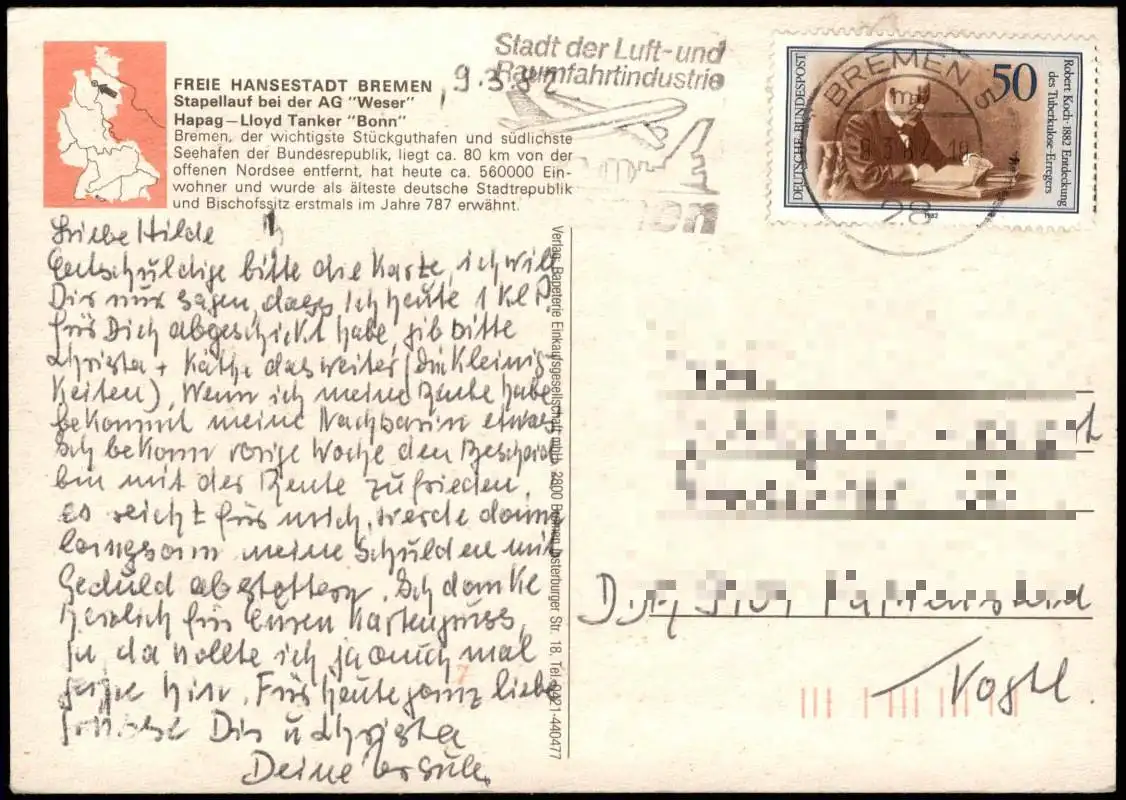 FREIE HANSESTADT BREMEN
Stapellauf bei der AG "Weser"
Hapag–Lloyd Tanker "Bonn"
Bremen, der wichtigste Stückguthafen und südlichste
Seehafen der Bundesrepublik, liegt ca. 80 km von der
offenen Nordsee entfernt, hat heute ca. 560000 Ein-
wohner und wurde als älteste deutsche Stadtrepublik
und Bischofssitz erstmals im Jahre 787 erwähnt.
9.3.82
Liebe Hilde
Entschuldige bitte die Karte, ich will
Dir nur sagen, dass ich heute 1 Kl. P.
für Dich abgeschickt habe, gib bitte
Christa + Käthe das weiter (die Kleinig-
keiten). Wenn ich meine Rente habe
bekommt meine Nachbarin etwas
Ich bekam vorige Woche den Bescheid
bin mit der Rente zufrieden,
es reicht für mich, werde dann
langsam meine Schulden mit
Geduld abstottern. Ich danke
herzlich für Euren Kartengruss,
ja, da wollte ich ja auch mal
gerne hin. Für heute ganz liebe
Grüsse Dir u Christa
Deine Ursula
Verlag: Papeterie Einkaufsgesellschaft mbH, 2800 Bremen, Osterburger Str. 18, Tel. 0421-440477
Stadt der Luft-und
Raumfahrtindustrie
DEUTSCHE BUNDESPOST
50
Robert Koch · 1882 Entdeckung
des Tuberkulose-Erregers
1982
BREMEN
28
Vogtl.
7